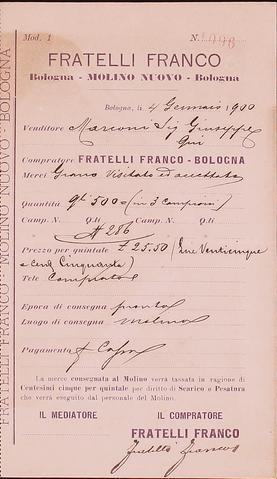 Mod. 1 N.
FRATELLI FRANCO
Bologna - MOLINO NUOVO - Bologna
Bologna, li 4 Gennaio 1900
Venditore Marconi Sig Giuseppe
Compratore FRATELLI FRANCO - BOLOGNA
Merci Grano Visitato ed accettato
Quantità Qli 500 (in 3 campioni)
Camp. N. Q.li Camp. N. Q.li
286
Prezzo per quintale £ 25.50 (Lire Venticinque
e Cent. Cinquanta)
Tele Compratore
Epoca di consegna pronta
Luogo di consegna molino
Pagamento
La merce consegnata al Molino verrà tassata in ragione di
Centesimi cinque per quintale per diritto di Scarico e Pesatura
che verrà eseguito dal personale del Molino.
IL MEDIATORE IL COMPRATORE
FRATELLI FRANCO
Fratelli Franco
FRATELLI FRANCO - MOLINO NUOVO - BOLOGNA